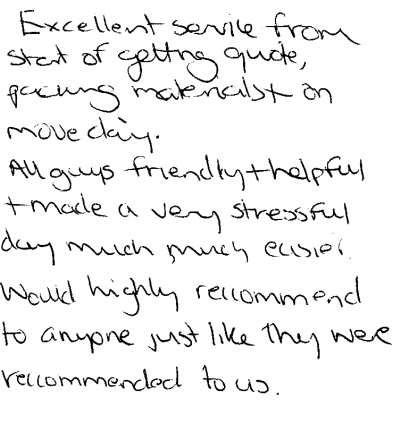 Excellent service from
start of getting quote,
packing materials + on
move day.
All guys friendly + helpful
+ made a very stressful
day much much easier.
Would highly reccommend
to anyone just like they were
reccommended to us.